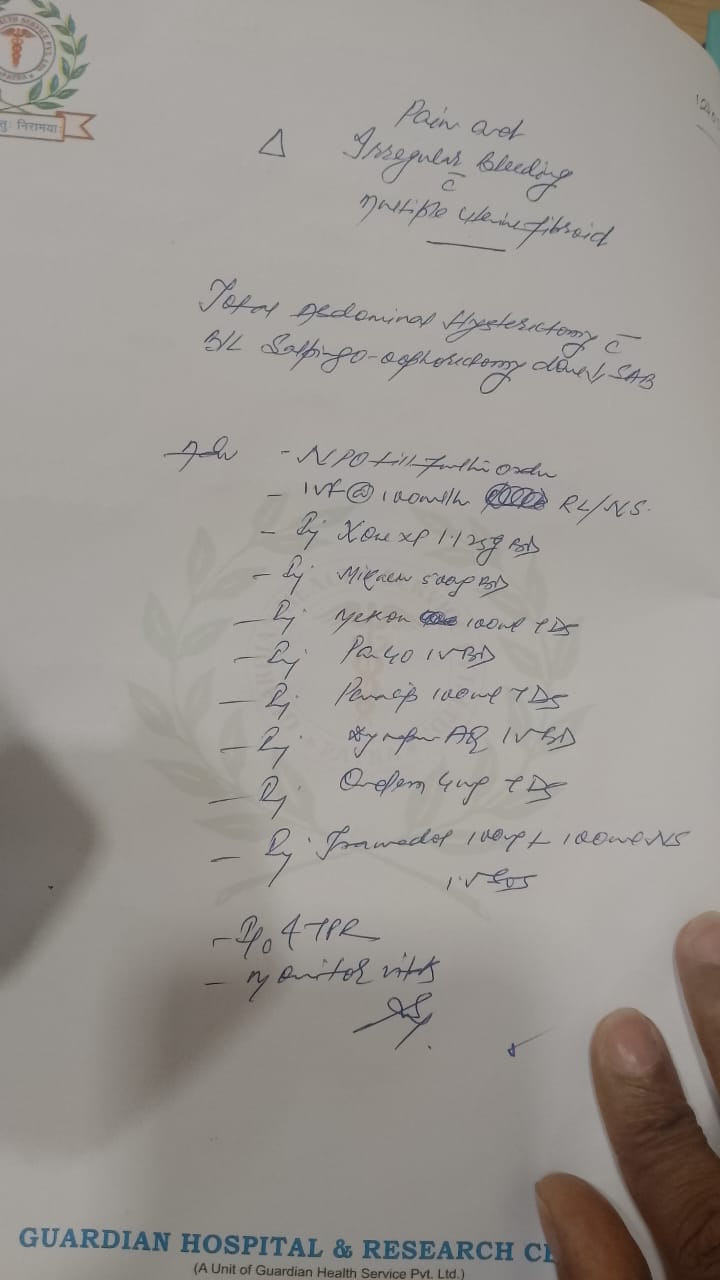 तु: निरामया:
Pain and
Δ Irregular bleeding
c̄
multiple uterine fibroid
Total Abdominal Hysterectomy c̄
B/L Salpingo-oophorectomy done SAB
Adv - NPO till further order
- IVF @ 100ml/h RL/NS.
- Inj Xone xp 1.125g BD
- Inj 500mg BD
- Inj 100ml TDS
- Inj Pan 40 IV BD
- Inj 100ml TDS
- Inj Dynapar AQ IV BD
- Inj Ondem 4mg TDS
- Inj Tramadol 100mg + 100ml NS
I.V SOS
- I/O & TPR
- Monitor vitals
GUARDIAN HOSPITAL & RESEARCH CE
(A Unit of Guardian Health Service Pvt. Ltd.)